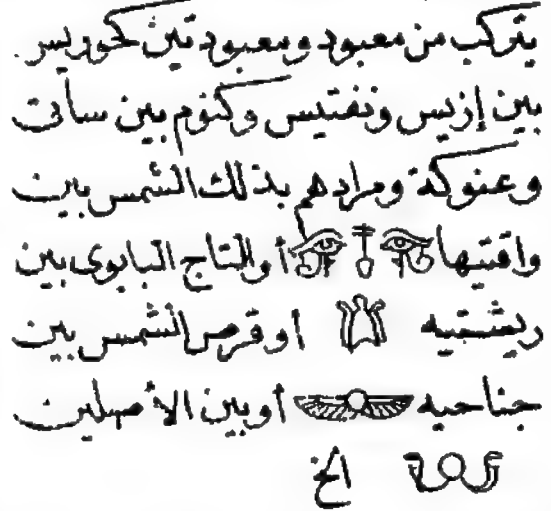 يتركب من معبود ومعبودتين كحوريس.
بين إزيس ونفتيس وكنوم بين ساتت
وعنوكة ومرادهم بذلك الشمس بين
واقتيها أو التاج البابوى بين
ريشتيه اوقرص الشمس بين
جناحيه أو بين الأصلين
الخ